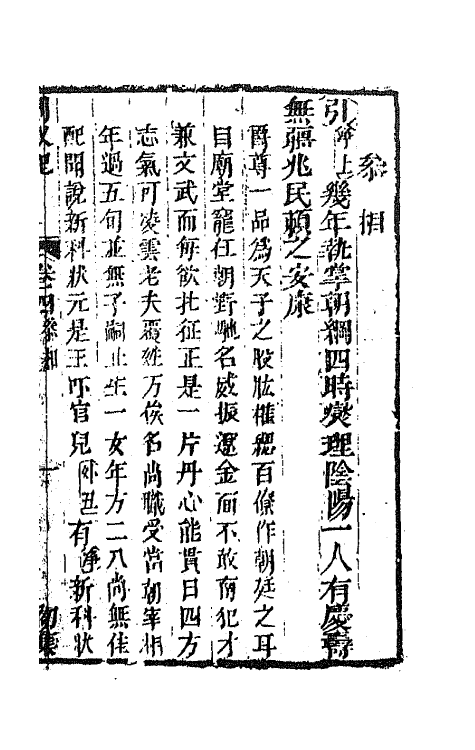 參相
引 淨上 幾年執掌朝綱四時燮理陰陽一人有慶壽
無疆兆民賴之安康
爵尊一品爲天子之股肱權總百僚作朝廷之耳
目廟堂寵任朝野馳名威振遼金而不敢南犯才
兼文武而每欲北征正是一片丹心能貫日四方
志氣可凌雲老夫覆姓万俟名尚職受當朝宰相
年過五旬並無子嗣止生一女年方二八尚無佳
配聞說新科狀元是王 吓官兒 外丑 有 淨 新科狀
卷四 參相